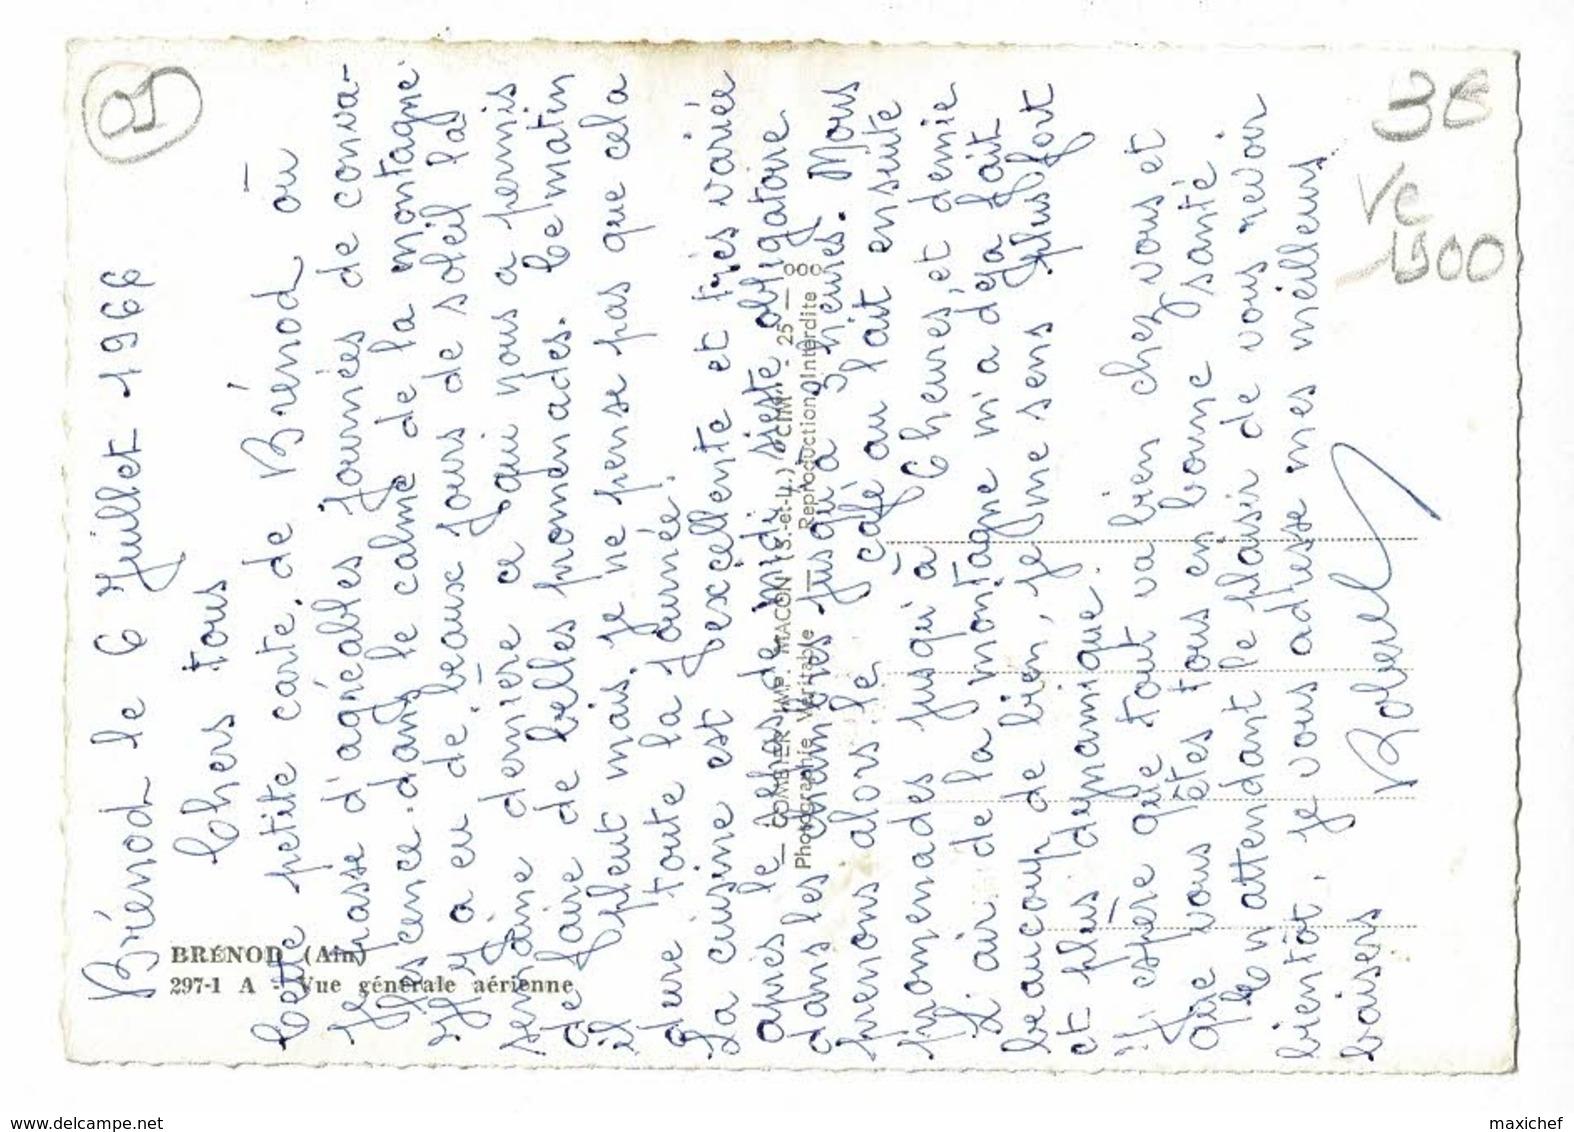 Brénod le 6 Juillet 1966
Chers tous
Cette petite carte de Brénod où
je passe d'agréables journées de conva-
lescence dans le calme de la montagne
il y a eu de beaux jours de soleil la
semaine dernière ce qui nous a permis
de faire de belles promenades. Le matin
il pleut mais je ne pense pas que cela
dure toute la journée.
La cuisine est excellente et très variée
après le repas de midi sieste obligatoire
dans les chambres jusqu'à 3 heures. Nous
prenons alors le café au lait ensuite
promenades jusqu'à 6 heures et demie
L'air de la montagne m'a déjà fait
beaucoup de bien, je me sens plus fort
et plus dynamique.
J'espère que tout va bien chez vous et
que vous êtes tous en bonne santé.
En attendant le plaisir de vous revoir
bientôt, je vous adresse mes meilleurs
baisers
Robert
BRÉNOD (Ain)
297-1 A - Vue générale aérienne
— COMBIER IMP. MACON (S.-et-L.) "CIM" - 25 — 000
Photographie Véritable — Reproduction Interdite
36
Ve
1500
www.delcampe.net
maxichef